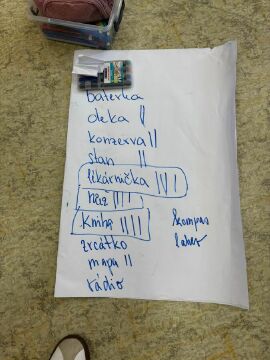 baterka
deka ||
konzerva ||
stan ||
lékárnička ||||
nůž ||||
Kniha ||||
zrcátko
mapa ||
rádio
kompas